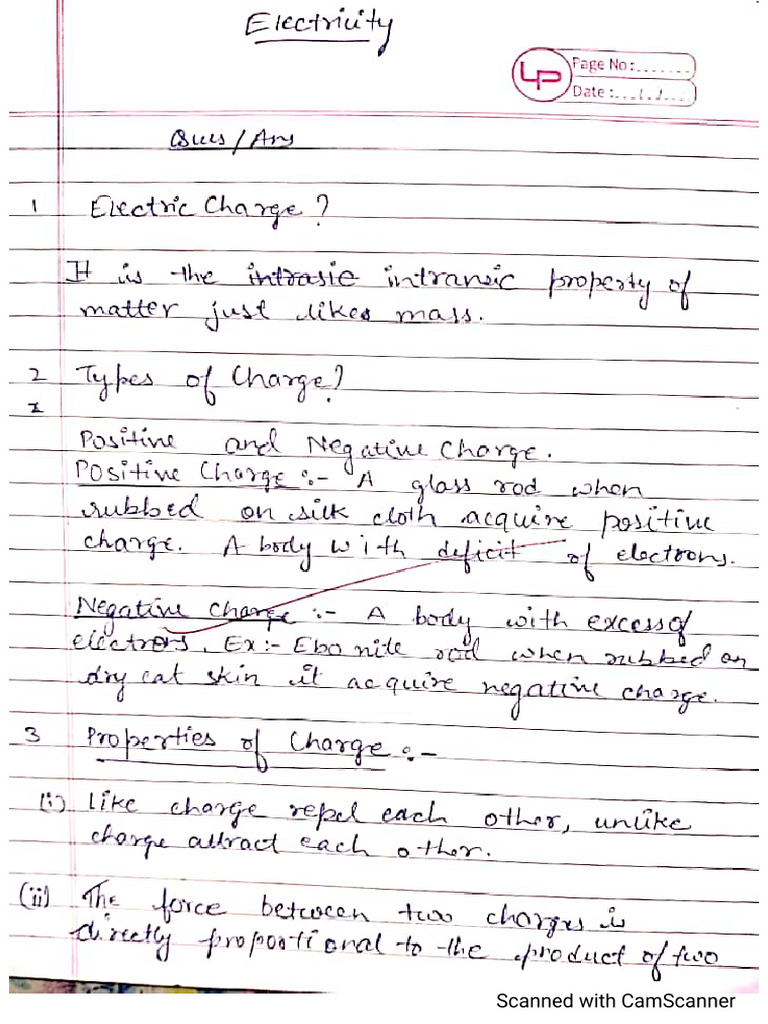 Electricity
LP
Page No:.......
Date :...../...../.....
Ques/Ans
1 Electric Charge?
It is the intrasic intransic property of
matter just likes mass.
2 Types of Charge?
Positive and Negative Charge.
Positive Charge :- A glass rod when
rubbed on silk cloth acquire positive
charge. A body with deficit of electrons.
Negative charge :- A body with excess of
electrons. Ex:- Ebonite rod when rubbed on
dry cat skin it acquire negative charge.
3 Properties of Charge :-
(i) Like charge repel each other, unlike
charge attract each other.
(ii) The force between two charges is
directly proportional to the product of two
Scanned with CamScanner